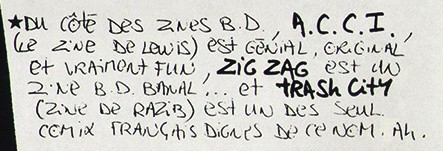 ★DU CÔTÉ DES ZINES B.D., A.C.C.I.,
(LE ZINE DE LEWIS) EST GÉNIAL, ORIGINAL
ET VRAIMENT FUN, ZIG ZAG EST UN
ZINE B.D. BANAL... ET TRASH CITY
(ZINE DE RAZIB) EST UN DES SEUL
COMIX FRANÇAIS DIGNES DE CE NOM. AH.